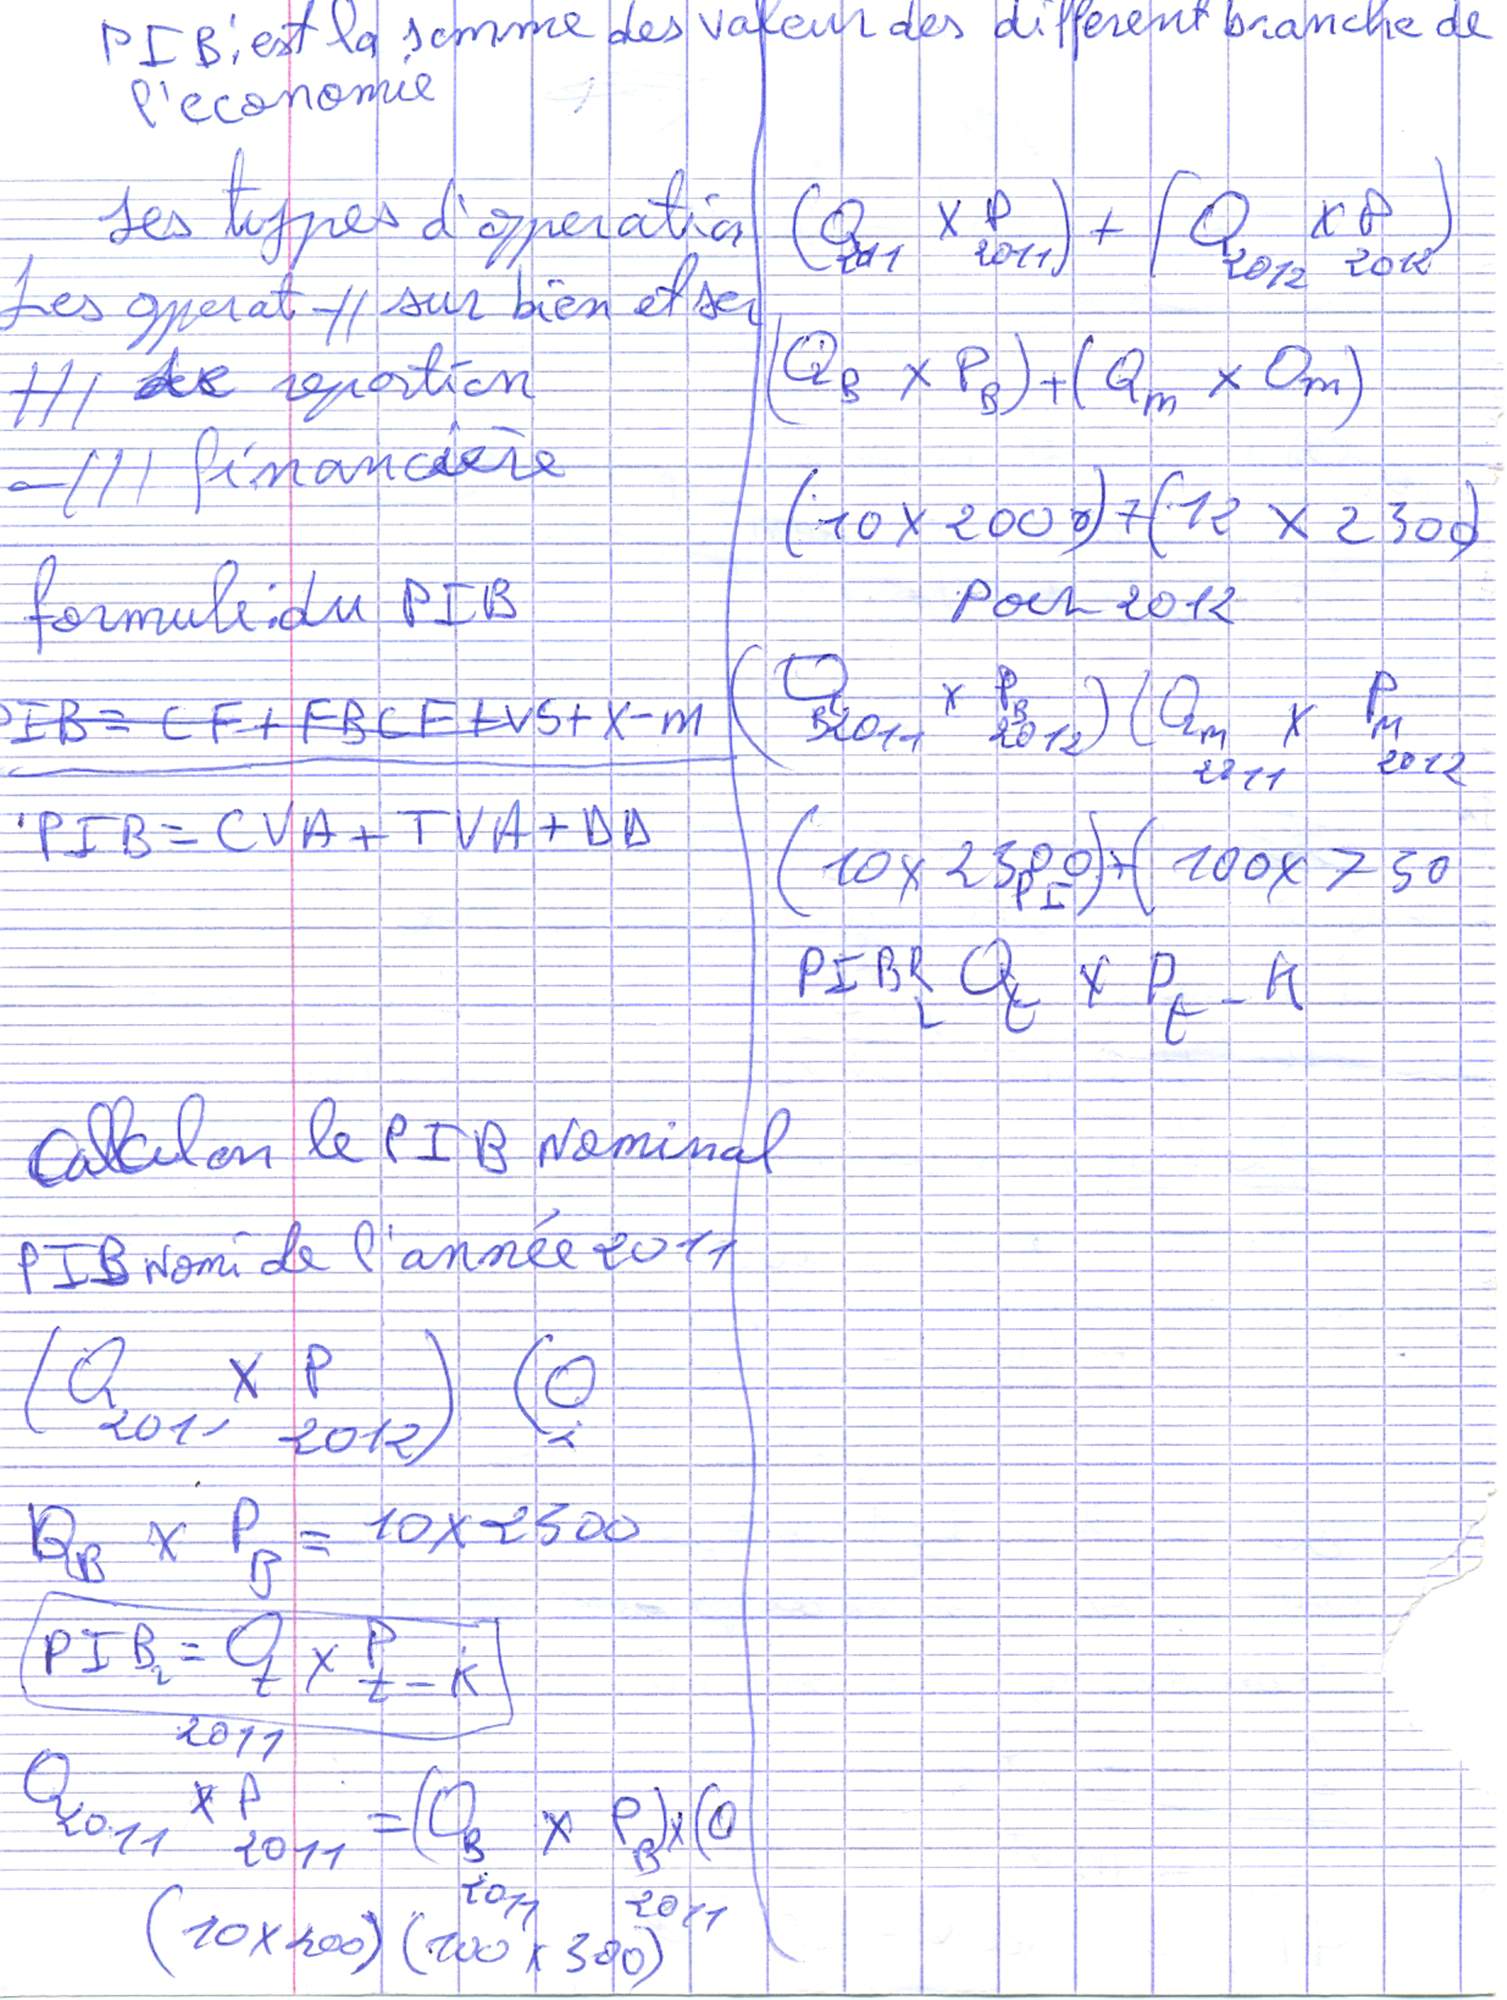 PIB: est la somme des valeur des different branche de
l'economie
Les types d'operation
Les operat -// sur bien et ser
-//- de reportion
-//- financière
formule: du PIB
PIB = CF + FBCF + VS + X - m
PIB = CVA + TVA + DD
Calculon le PIB Nominal
PIB Nomi de l'année 2011
(Q2011 x P2012) (Q
QB x PB = 10 x 2300
PIBr = Qt x Pt-k
2011
Q2011 x P2011 = (QB2011 x PB2011) x (Q
(10 x 200) (100 x 300)
(Q2011 x P2011) + (Q2012 x P2012)
(QB x PB) + (Qm x Om)
(10 x 2000) + (12 x 2300)
Pour 2012
(QB2011 x PB2012) (Qm2011 x PM2012
(10 x 2300) + (100 x 750
PI
PIBR Qt x Pt - k